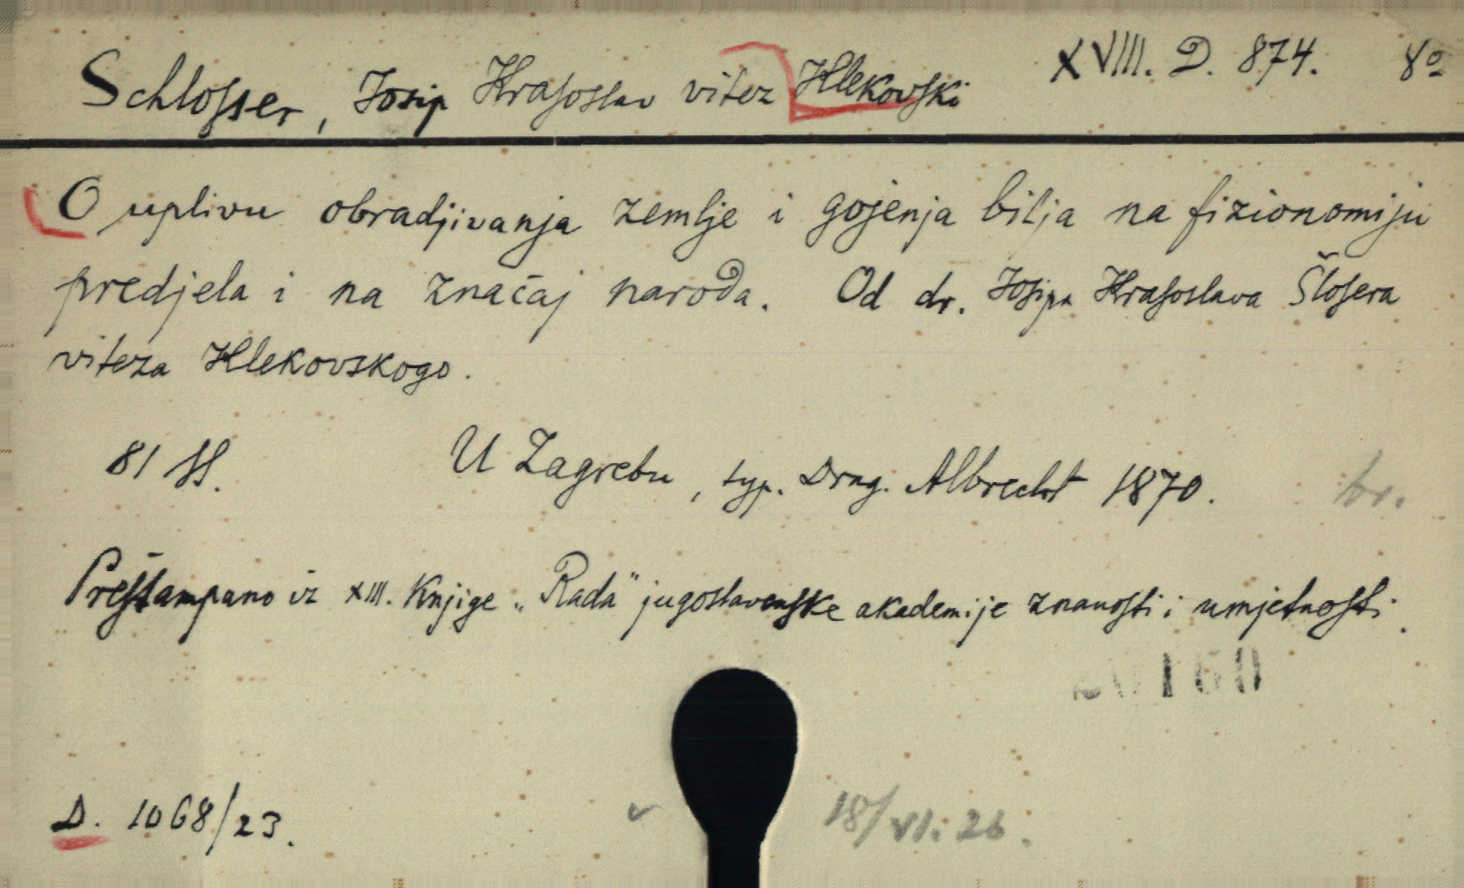 Schlosser, Josip Krasoslav vitez Klekovski XVIII. D. 874. 8º
O uplivu obradjivanja zemlje i gojenja bilja na fizionomiju
predjela i na značaj naroda. Od dr. Josipa Krasoslava Šlosera
viteza Klekovskogo.
81 SS. U Zagrebu, typ. Drag. Albrecht 1870. br.
Preštampano iz XIII. Knjige „Rada" jugoslavenske akademije znanosti i umjetnosti.
D. 1068/23. 18/VI. 26.